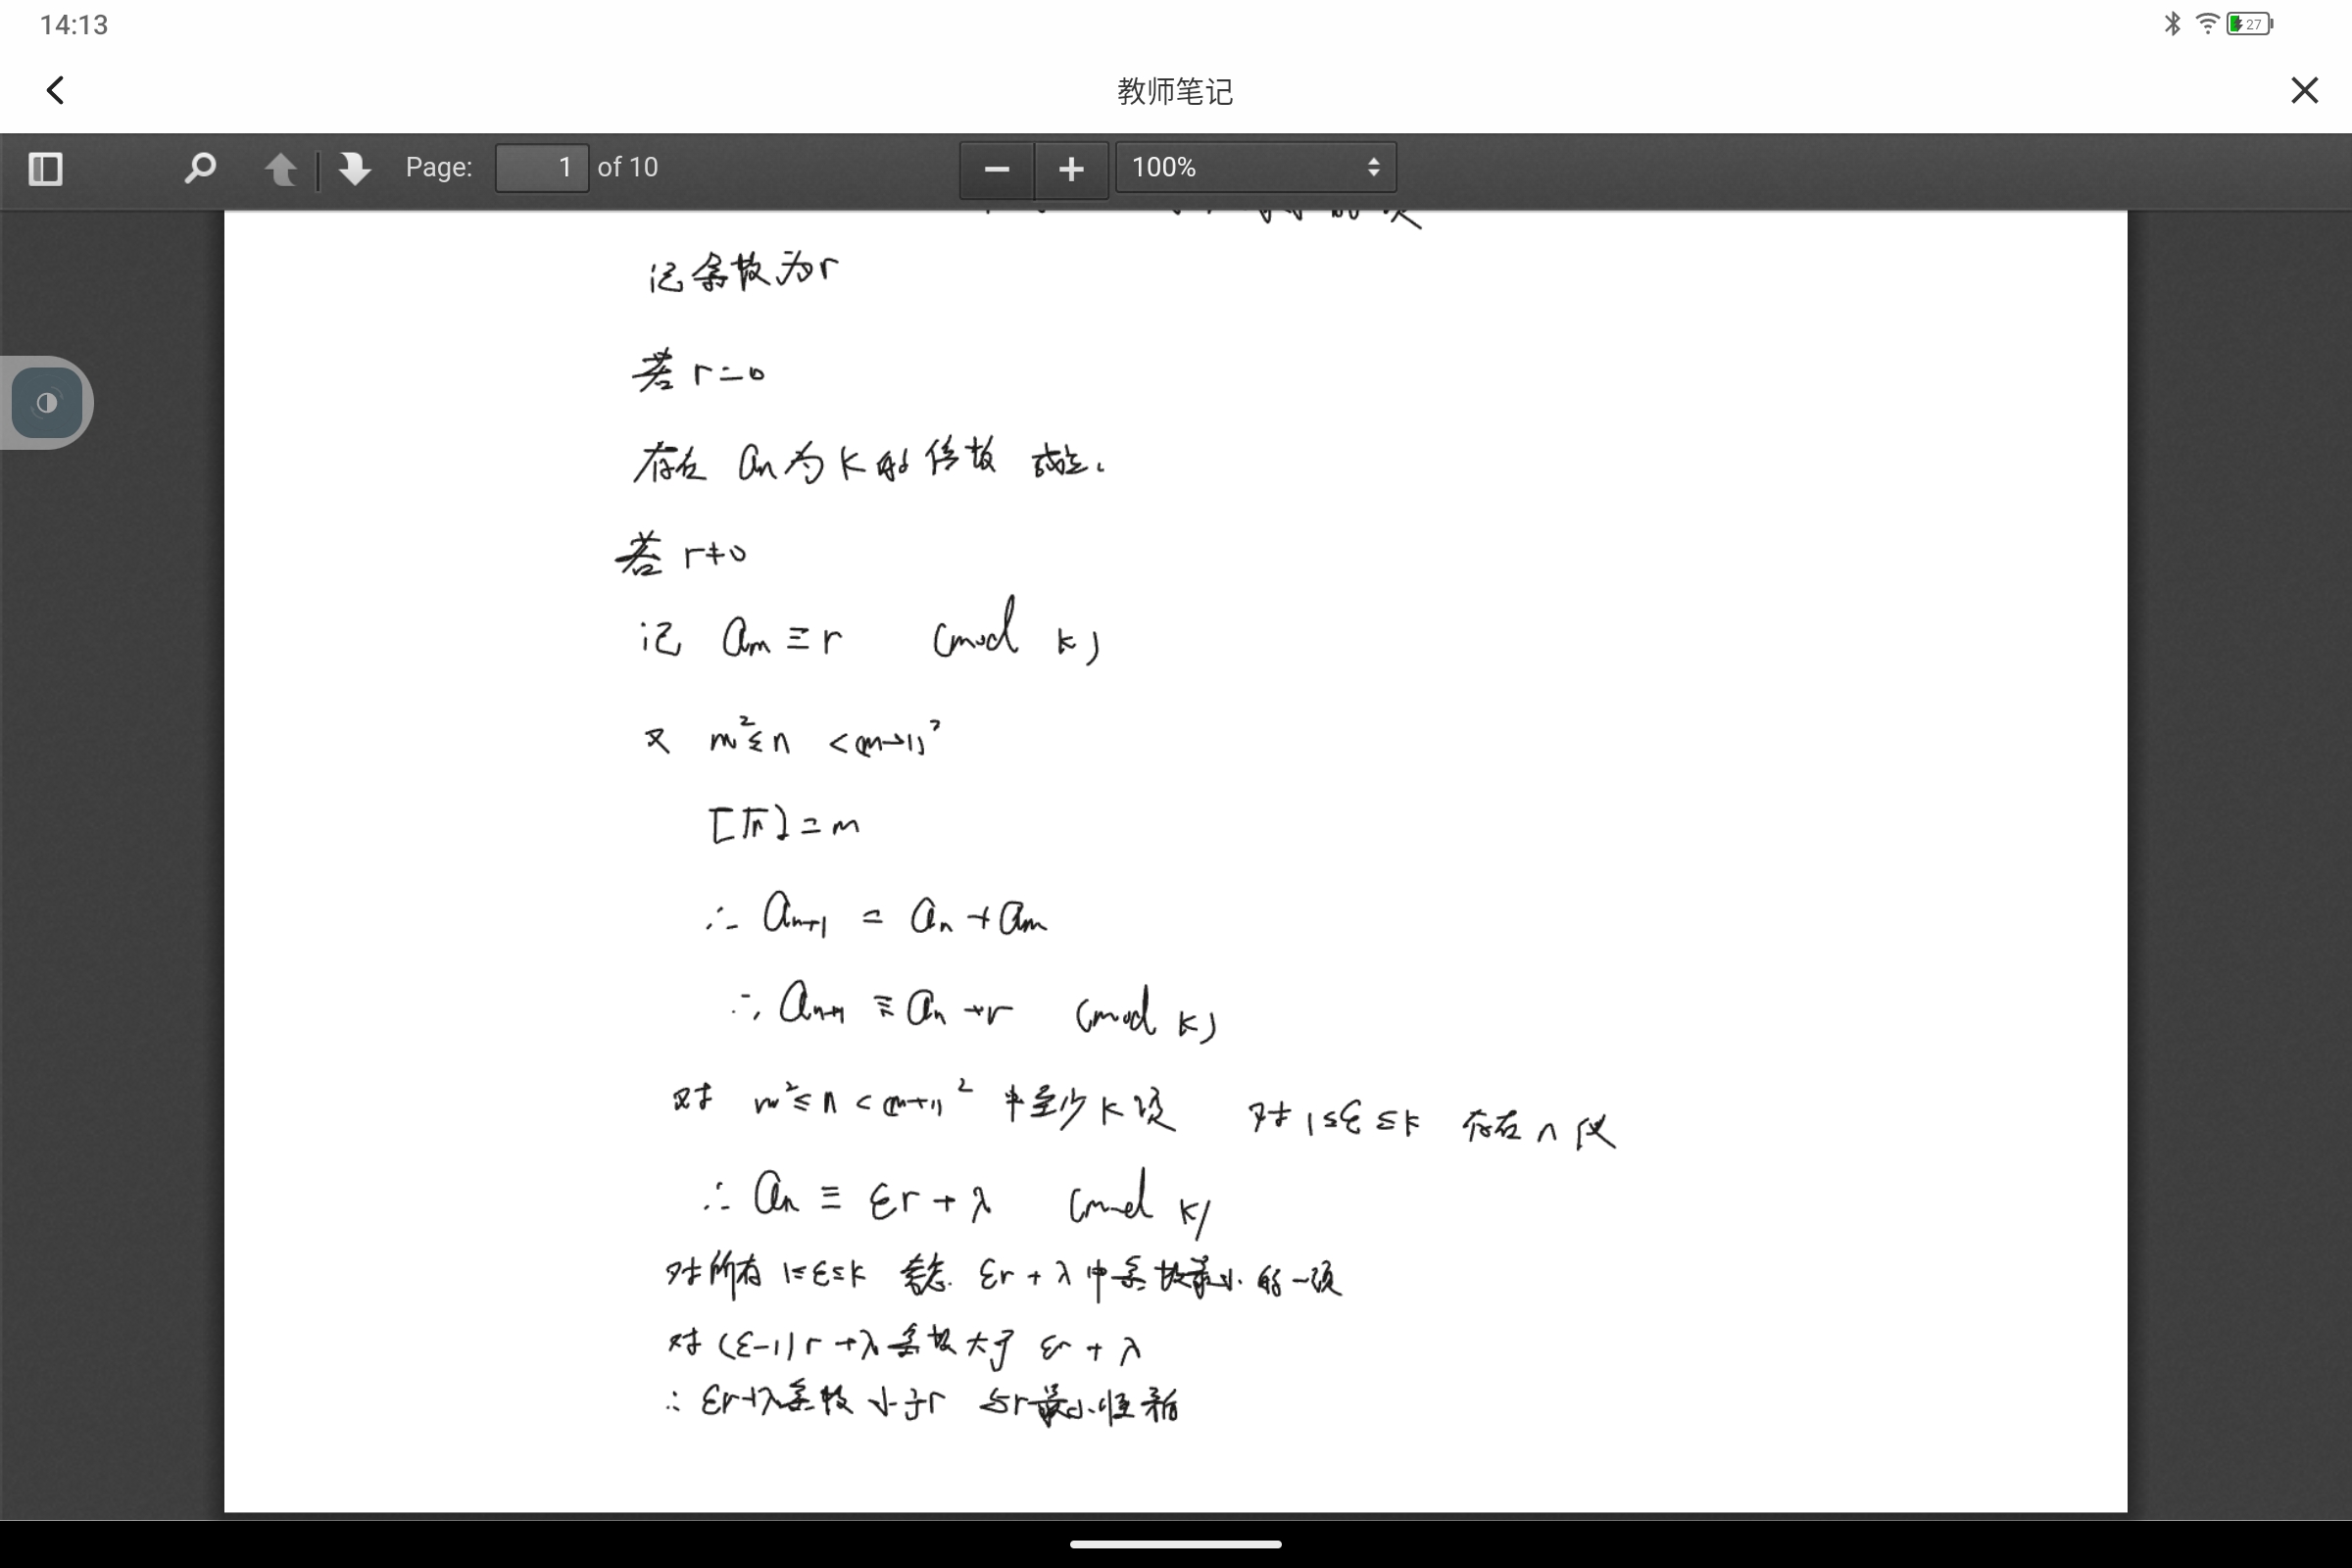 14:13
27
教师笔记
Page: 1 of 10
100%
记余数为r
若 r=0
存在 an为 k 的倍数 成立.
若 r≠0
记 am ≡ r (mod k)
又 m²≤n <(m+1)²
[√n]=m
∴ an+1 = an + am
∴ an+1 ≡ an + r (mod k)
对 m²≤n<(m+1)² 中至少k项 对 1≤ε≤k 存在n 仅
∴ an ≡ εr+λ (mod k)
对所有 1≤ε≤k 考虑 εr+λ中余数最小的一项
对(ε-1)r+λ余数大于 εr+λ
∴ εr+λ余数小于r 与r最小性矛盾